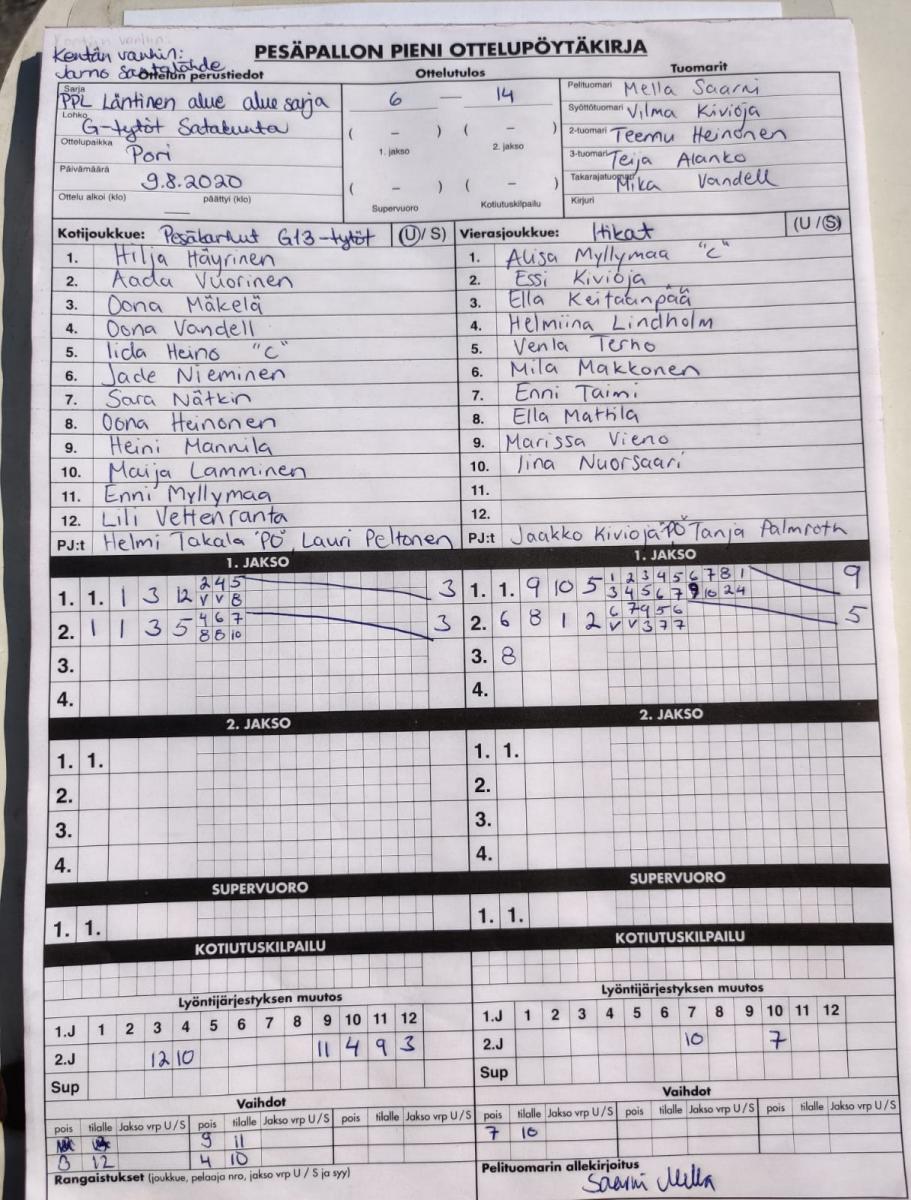 Kentän vanhin:
PESÄPALLON PIENI OTTELUPÖYTÄKIRJA
Jarno Santalahde
Ottelun perustiedot
Ottelutulos
Tuomarit
Sarja PPL Läntinen alue alue sarja
6 — 14
Pelituomari Mella Saarni
Lohko G-tytöt Satakunta
( – ) ( – )
Syöttötuomari Vilma Kivioja
Ottelupaikka Pori
1. jakso 2. jakso
2-tuomari Teemu Heinonen
3-tuomari Teija Alanko
Päivämäärä 9.8.2020
( – ) ( – )
Takarajatuomari Mika Vandell
Ottelu alkoi (klo) — päättyi (klo)
Supervuoro Kotiutuskilpailu
Kirjuri
Kotijoukkue: Pesäkarhut G13-tytöt (U/S)
Vierasjoukkue: Itikat (U/S)
1. Hilja Häyrinen
2. Aada Vuorinen
3. Oona Mäkelä
4. Oona Vandell
5. Iida Heino "C"
6. Jade Nieminen
7. Sara Nätkin
8. Oona Heinonen
9. Heini Mannila
10. Maija Lamminen
11. Enni Myllymaa
12. Lili Vettenranta
PJ:t Helmi Takala "PÖ", Lauri Peltonen
1. Alisa Myllymaa "C"
2. Essi Kivioja
3. Ella Keitaanpää
4. Helmiina Lindholm
5. Venla Terho
6. Mila Makkonen
7. Enni Taimi
8. Ella Mattila
9. Marissa Vieno
10. Iina Nuorsaari
11.
12.
PJ:t Jaakko Kivioja "PÖ" Tanja Palmroth
1. JAKSO
1. 1. 1 3 12 2 4 5 3
V V 8
2. 1 1 3 5 4 6 7 3
8 8 10
3.
4.
1. JAKSO
1. 1. 9 10 5 1 2 3 4 5 6 7 8 1 9
3 4 5 6 7 9 10 2 4
2. 6 8 1 2 6 7 9 5 6 5
V V 3 7 7
3. 8
4.
2. JAKSO
1. 1.
2.
3.
4.
2. JAKSO
1. 1.
2.
3.
4.
SUPERVUORO
1. 1.
SUPERVUORO
1. 1.
KOTIUTUSKILPAILU
KOTIUTUSKILPAILU
Lyöntijärjestyksen muutos
1.J 1 2 3 4 5 6 7 8 9 10 11 12
2.J 12 10 11 4 9 3
Sup
Lyöntijärjestyksen muutos
1.J 1 2 3 4 5 6 7 8 9 10 11 12
2.J 10 7
Sup
Vaihdot
pois tilalle Jakso vrp U/S pois tilalle Jakso vrp U/S pois tilalle Jakso vrp U/S
9 11
12 4 10
Rangaistukset (joukkue, pelaaja nro, jakso vrp U / S ja syy)
Vaihdot
pois tilalle Jakso vrp U/S pois tilalle Jakso vrp U/S pois tilalle Jakso vrp U/S
7 10
Pelituomarin allekirjoitus
Saarni Mella